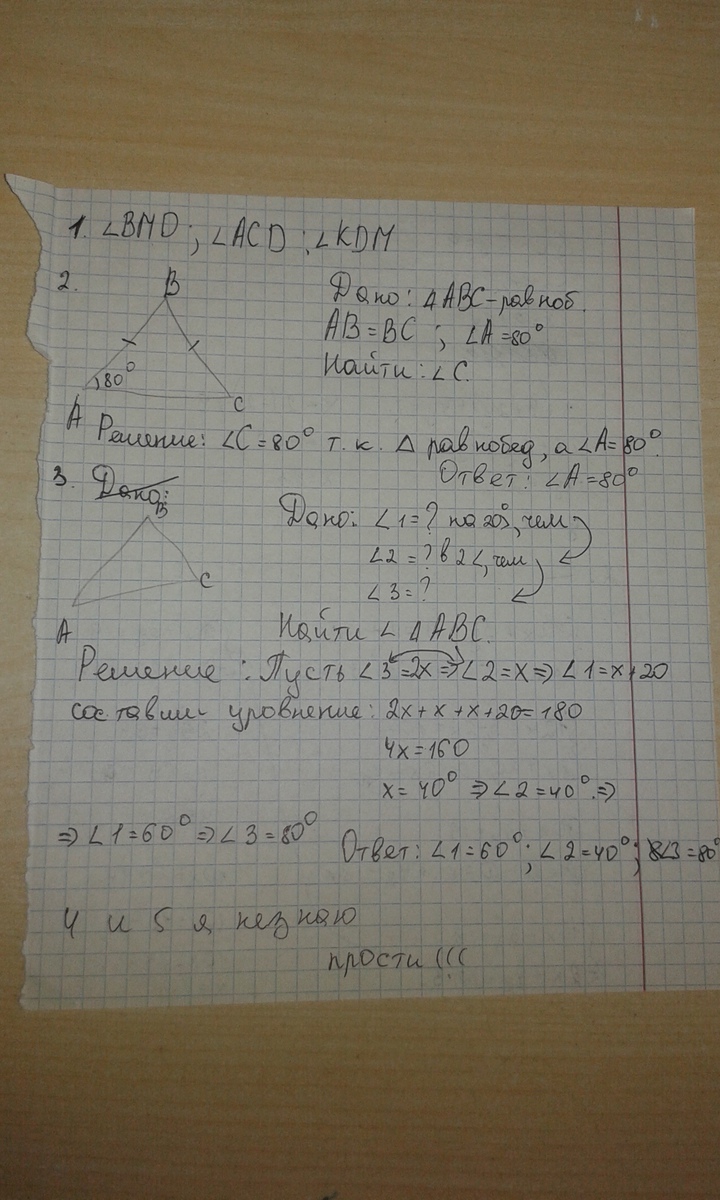 1. ∠BMD; ∠ACD; ∠KDM
2.
B
80°
A
C
Дано: Δ ABC - равноб.
AB = BC ; ∠A = 80°
Найти: ∠C.
Решение: ∠C = 80° т. к. Δ равнобед, а ∠A = 80°.
Ответ: ∠A = 80°
3. Дано:
B
C
A
Дано: ∠1 = ? на 20°, чем
∠2 = ? в 2 <, чем
∠3 = ?
Найти ∠ Δ ABC.
Решение: Пусть ∠3 = 2x ⇒ ∠2 = x ⇒ ∠1 = x+20
составим уровнение: 2x + x + x + 20 = 180
4x = 160
x = 40° ⇒ ∠2 = 40° ⇒
⇒ ∠1 = 60° ⇒ ∠3 = 80°
Ответ: ∠1 = 60°; ∠2 = 40°; ∠3 = 80°
4 и 5 я незнаю
прости (((